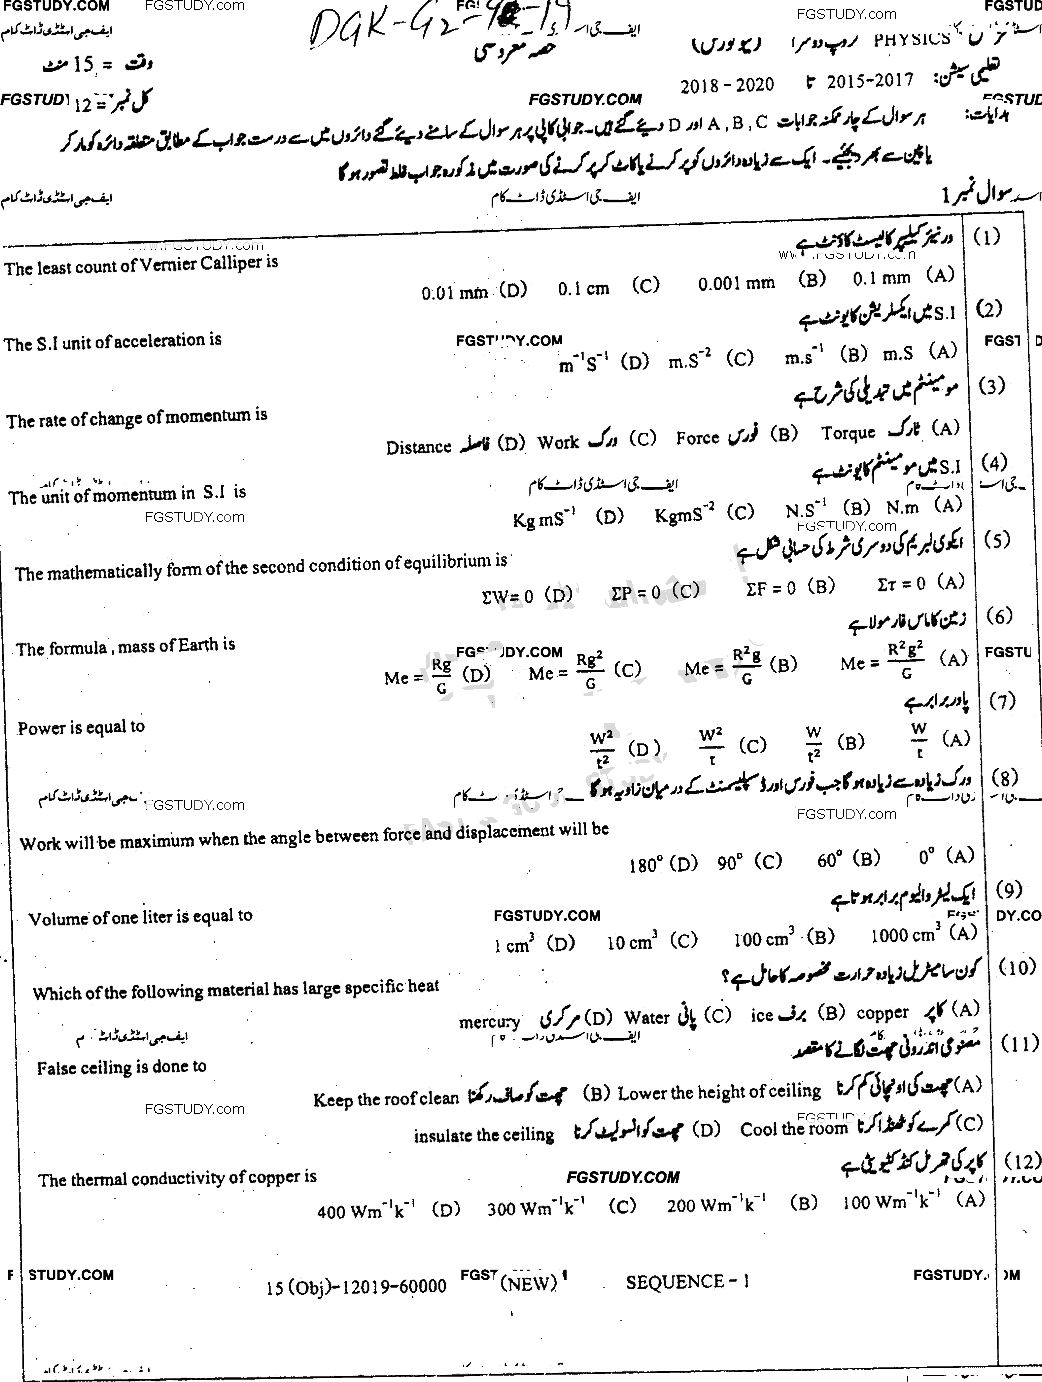 FGSTUDY.COM
FGSTUDY.com
DGK-G2-
ایف جی اسٹڈی ڈاٹ کام
حصہ معروضی
PHYSICS گروپ دوسرا (نیو کورس)
وقت = 15 منٹ
تعلیمی سیشن: 2015-2017 تا 2018 - 2020
FGSTUDY.COM
کل نمبر = 12
ہدایات: ہر سوال کے چار ممکنہ جوابات A , B , C اور D دیئے گئے ہیں۔ جوابی کاپی پر ہر سوال کے سامنے دیئے گئے دائروں میں سے درست جواب کے مطابق متعلقہ دائرہ کو مارکر
یا پین سے بھر دیجئے۔ ایک سے زیادہ دائروں کو پر کرنے یا کاٹ کر پر کرنے کی صورت میں مذکورہ جواب غلط تصور ہو گا
ایف جی اسٹڈی ڈاٹ کام
ایف جی اسٹڈی ڈاٹ کام
سوال نمبر 1
(1) ورنیئر کیلیپر کا لیسٹ کاؤنٹ ہے
The least count of Vernier Calliper is
(A) 0.1 mm (B) 0.001 mm (C) 0.1 cm (D) 0.01 mm
(2) S.I میں ایکسلریشن کا یونٹ ہے
The S.I unit of acceleration is
FGSTUDY.COM
(A) m.S (B) m.s⁻¹ (C) m.S⁻² (D) m⁻¹S⁻¹
(3) مومینٹم میں تبدیلی کی شرح ہے
The rate of change of momentum is
(A) ٹارک Torque (B) فورس Force (C) ورک Work (D) فاصلہ Distance
(4) S.I میں مومینٹم کا یونٹ ہے
The unit of momentum in S.I is
ایف جی اسٹڈی ڈاٹ کام
FGSTUDY.com
(A) N.m (B) N.S⁻¹ (C) KgmS⁻² (D) KgmS⁻¹
FGSTUDY.com
(5) ایکوی لبریم کی دوسری شرط کی حسابی شکل ہے
The mathematically form of the second condition of equilibrium is
(A) Στ = 0 (B) ΣF = 0 (C) ΣP = 0 (D) ΣW = 0
(6) زمین کا ماس فارمولا ہے
The formula , mass of Earth is
(A) Me = R²g²/G (B) Me = R²g/G (C) Me = Rg²/G (D) Me = Rg/G
(7) پاور برابر ہے
Power is equal to
(A) W/t (B) W/t² (C) W²/t (D) W²/t²
(8) ورک زیادہ سے زیادہ ہو گا جب فورس اور ڈسپلیسمنٹ کے درمیان زاویہ ہو گا
FGSTUDY.com
FGSTUDY.com
Work will be maximum when the angle between force and displacement will be
(A) 0° (B) 60° (C) 90° (D) 180°
(9) ایک لیٹر والیوم برابر ہوتا ہے
Volume of one liter is equal to
FGSTUDY.COM
(A) 1000 cm³ (B) 100 cm³ (C) 10 cm³ (D) 1 cm³
(10) کون سا میٹریل زیادہ حرارت مخصوصہ کا حامل ہے؟
Which of the following material has large specific heat
(A) کاپر copper (B) برف ice (C) پانی Water (D) مرکری mercury
(11) مصنوعی اندرونی چھت لگانے کا مقصد
False ceiling is done to
(A) چھت کی اونچائی کم کرنا Lower the height of ceiling (B) چھت کو صاف رکھنا Keep the roof clean
FGSTUDY.com
(C) کمرے کو ٹھنڈا کرنا Cool the room (D) چھت کو انسولیٹ کرنا insulate the ceiling
(12) کاپر کی تھرمل کنڈکٹیویٹی ہے
The thermal conductivity of copper is
FGSTUDY.COM
(A) 100 Wm⁻¹k⁻¹ (B) 200 Wm⁻¹k⁻¹ (C) 300 Wm⁻¹k⁻¹ (D) 400 Wm⁻¹k⁻¹
15 (Obj)-12019-60000 (NEW) SEQUENCE - 1